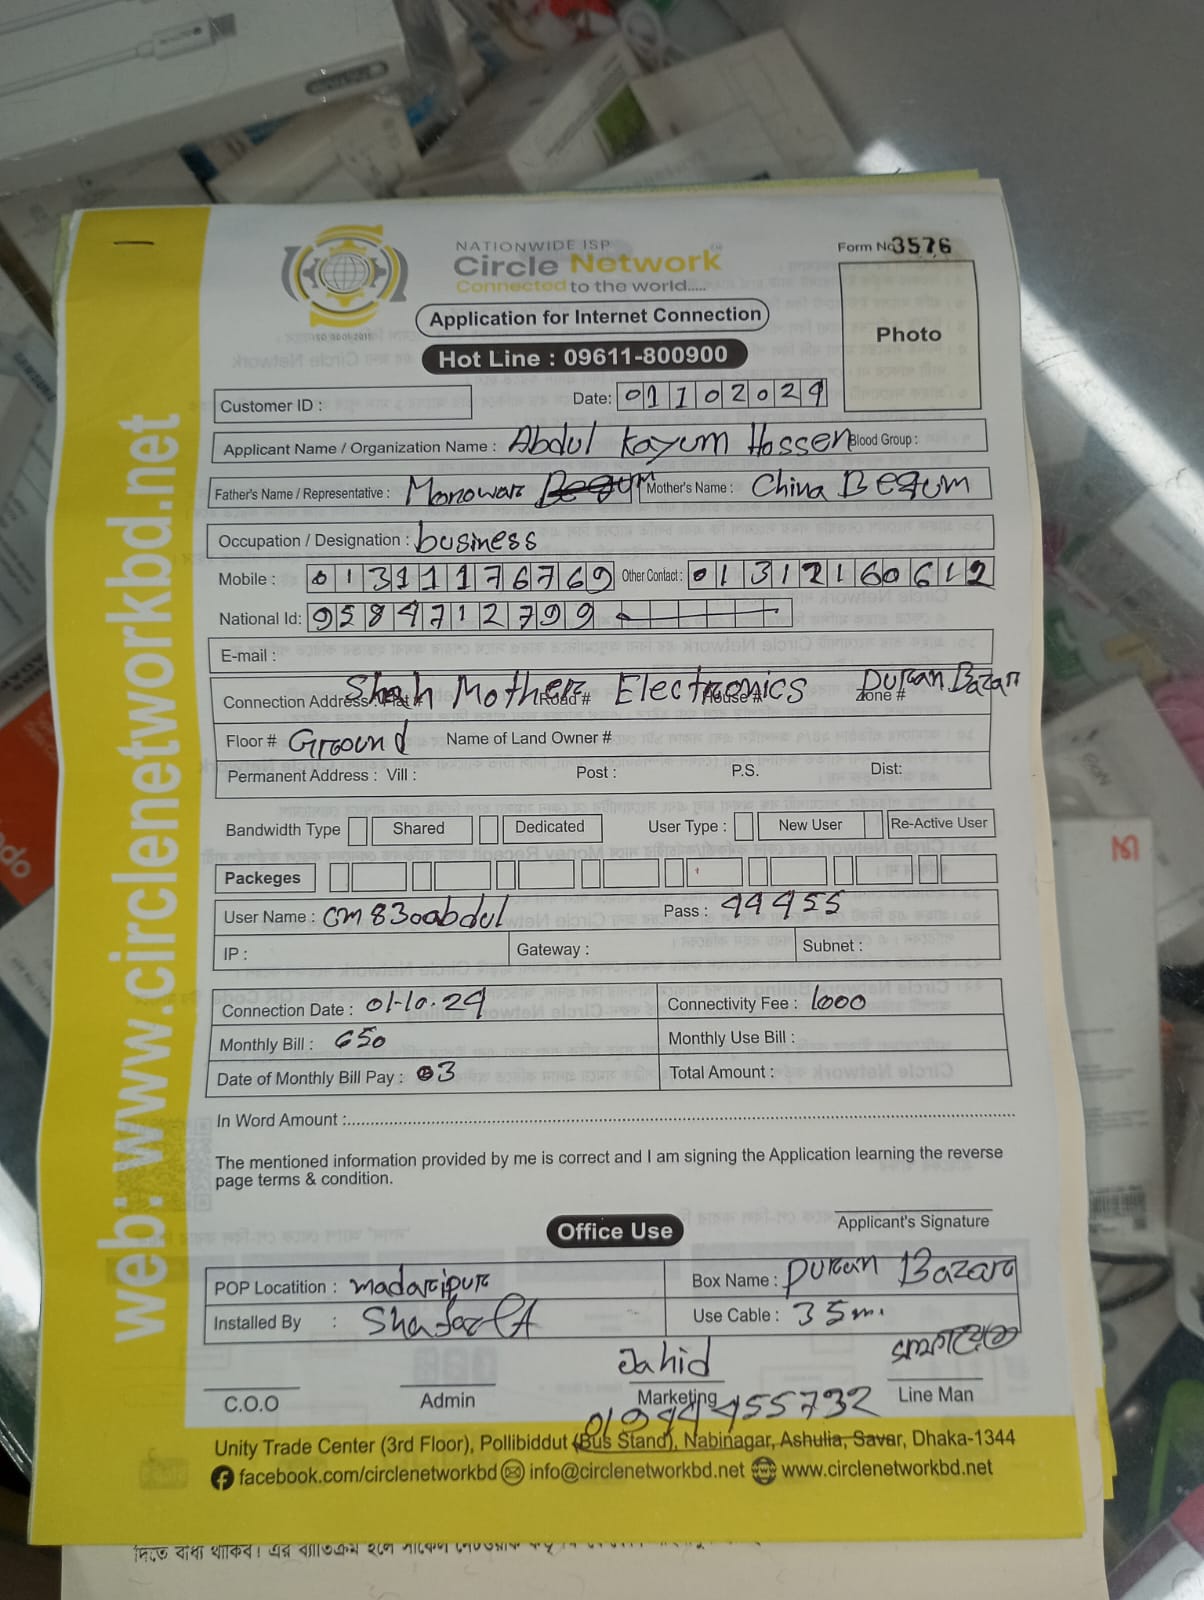 NATIONWIDE ISP
Circle Network
Connected to the world.....
ISO 9001:2015
Form No 3576
Photo
Application for Internet Connection
Hot Line : 09611-800900
Customer ID :
Date: 01102024
Applicant Name / Organization Name : Abdul Kayum Hossen Blood Group :
Father's Name / Representative : Monowar Mother's Name : China Begum
Occupation / Designation : business
Mobile : 01311176769 Other Contact : 01312160612
National Id: 9584712799
E-mail :
Connection Address : Flat # Road # House # Zone # Shah Mother Electronics Puran Bazar
Floor # Ground Name of Land Owner #
Permanent Address : Vill : Post : P.S. Dist:
Bandwidth Type Shared Dedicated User Type : New User Re-Active User
Packeges
User Name : cm830abdul Pass : 44455
IP : Gateway : Subnet :
Connection Date : 01-10-24 Connectivity Fee : 1000
Monthly Bill : 650 Monthly Use Bill :
Date of Monthly Bill Pay : 03 Total Amount :
In Word Amount :
The mentioned information provided by me is correct and I am signing the Application learning the reverse
page terms & condition.
Applicant's Signature
Office Use
POP Locatition : madaripur Box Name : Puran Bazar
Installed By : Use Cable : 35m.
Jahid
C.O.O Admin Marketing Line Man
Unity Trade Center (3rd Floor), Pollibiddut (Bus Stand), Nabinagar, Ashulia, Savar, Dhaka-1344
facebook.com/circlenetworkbd info@circlenetworkbd.net www.circlenetworkbd.net
web: www.circlenetworkbd.net